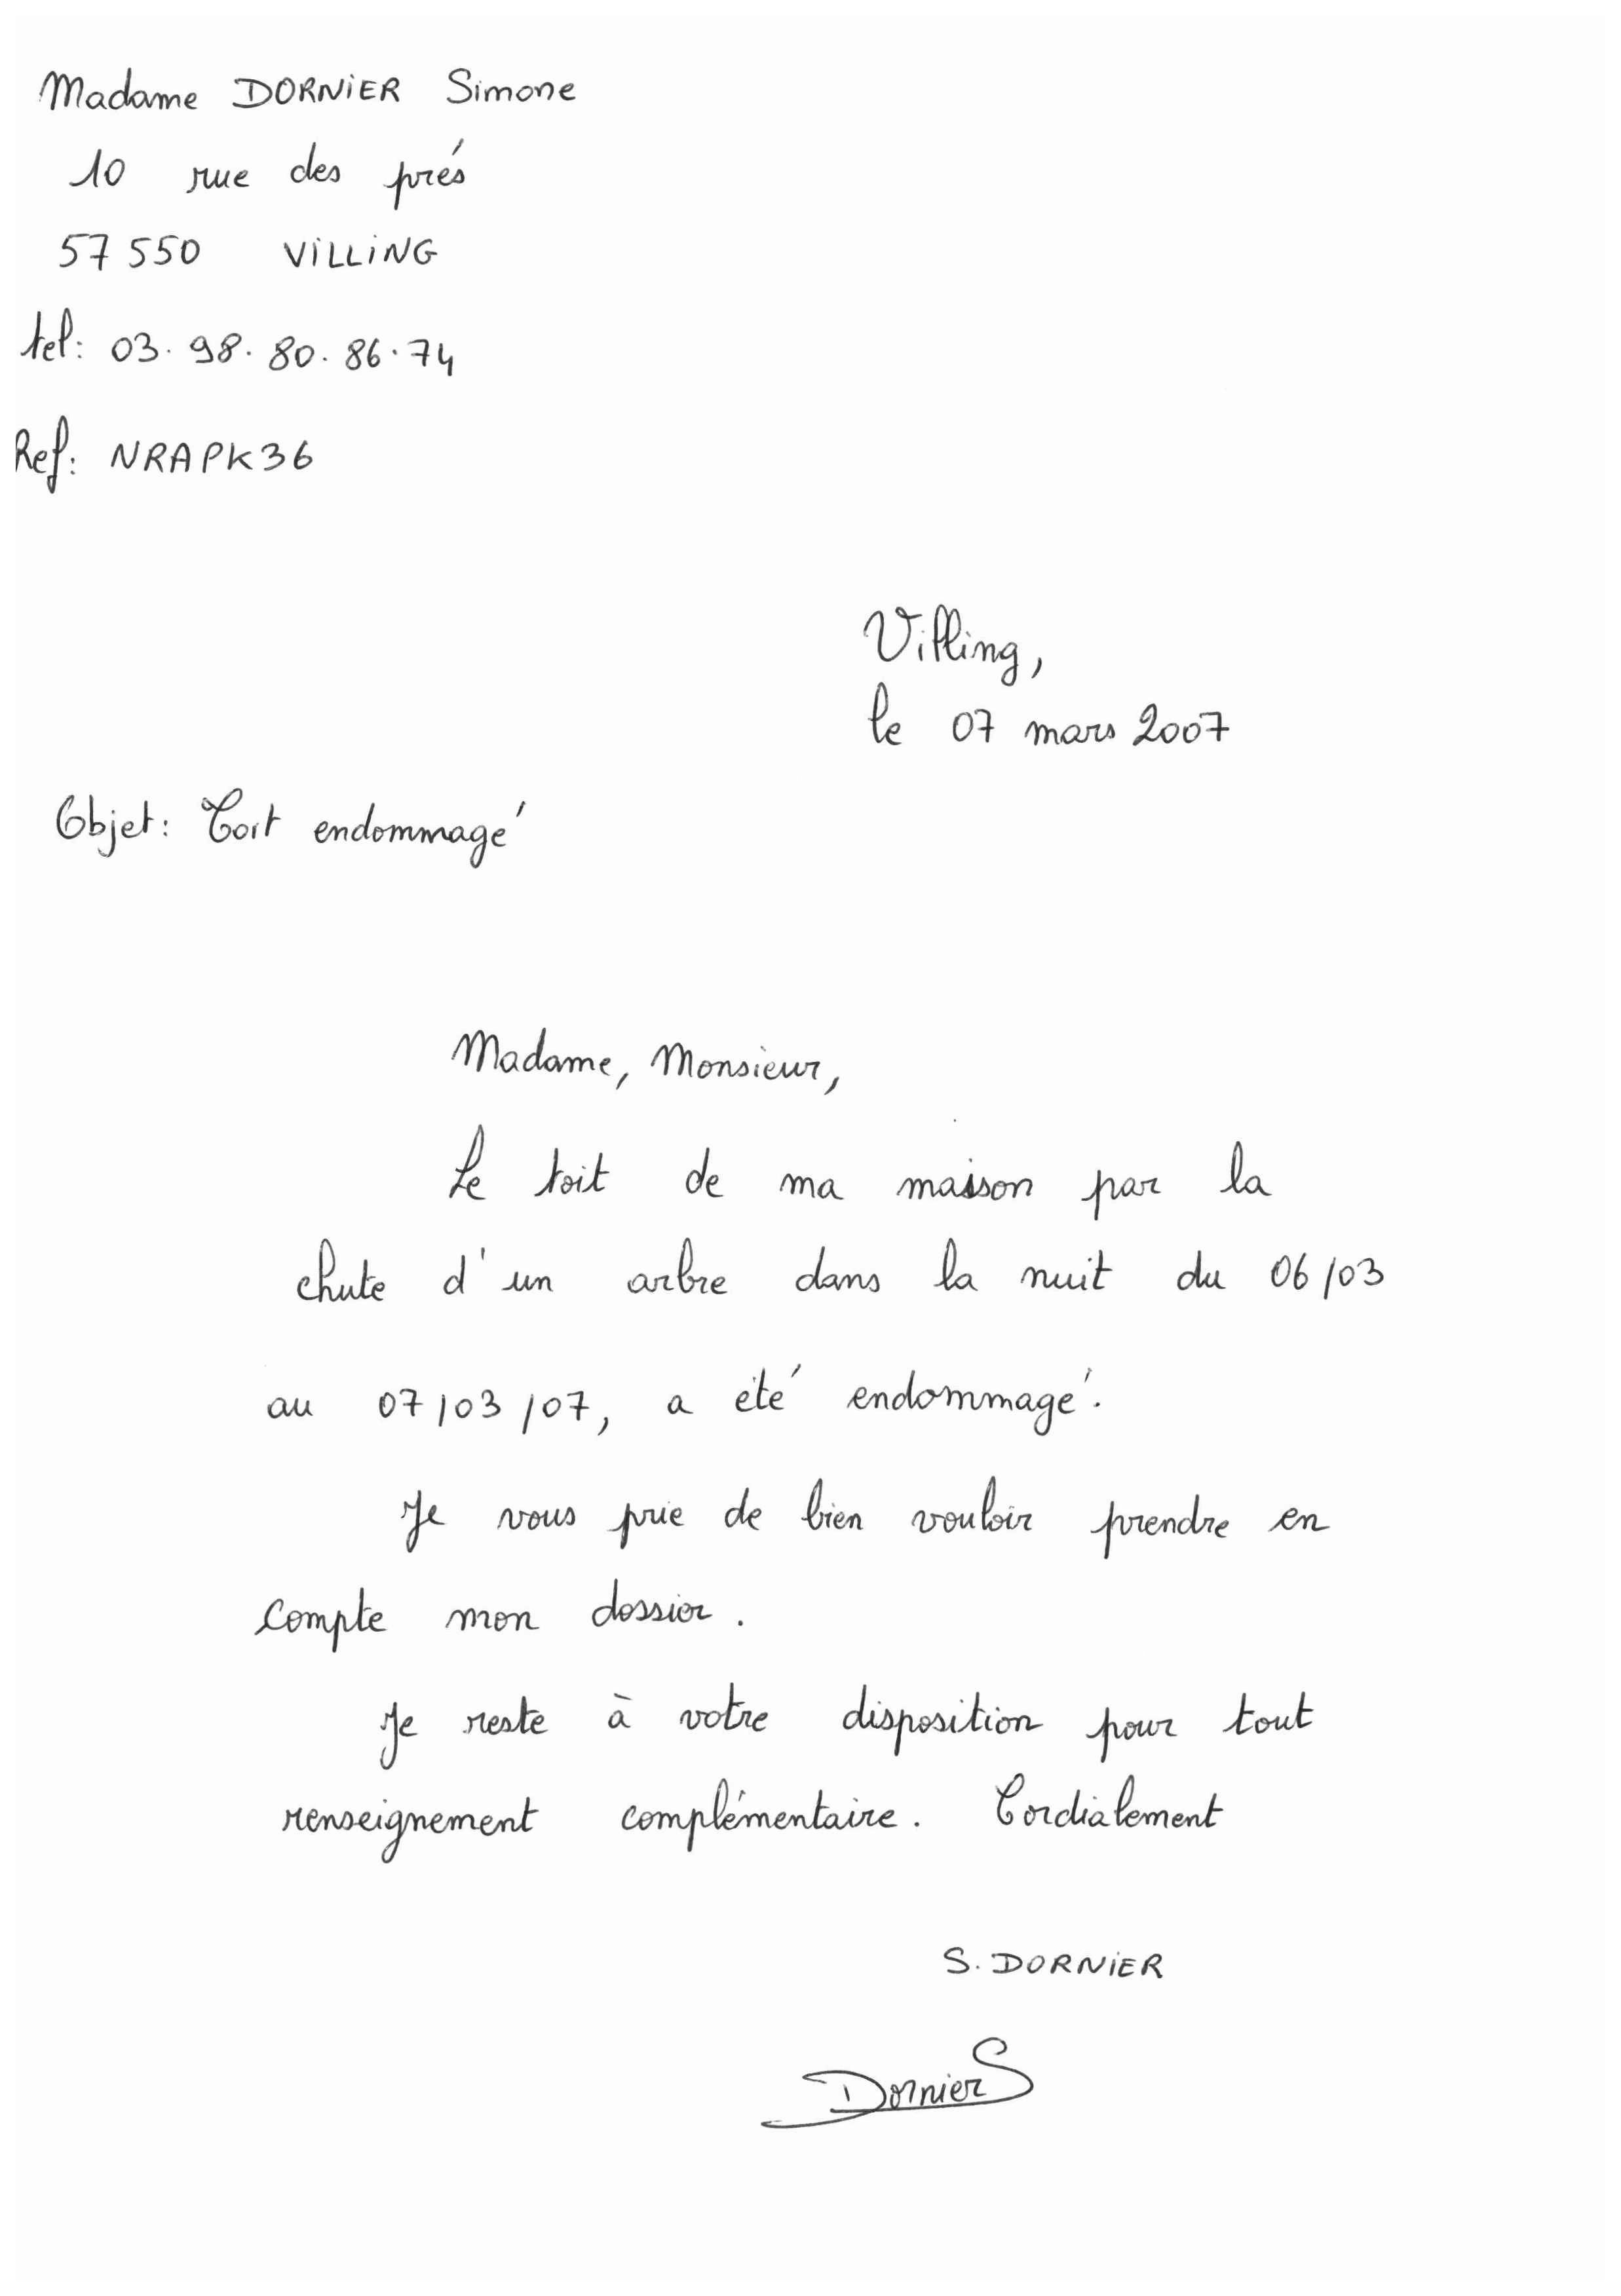 Madame DORNIER Simone
10 rue des prés
57 550 VILLING
tel: 03. 98. 80. 86. 74
Ref: NRAPK36
Villing,
le 07 mars 2007
Objet: Toit endommagé
Madame, Monsieur,
Le toit de ma maison par la
chute d'un arbre dans la nuit du 06/03
au 07/03/07, a été endommagé.
Je vous prie de bien vouloir prendre en
compte mon dossier.
Je reste à votre disposition pour tout
renseignement complémentaire. Cordialement
S. DORNIER
Dornier S